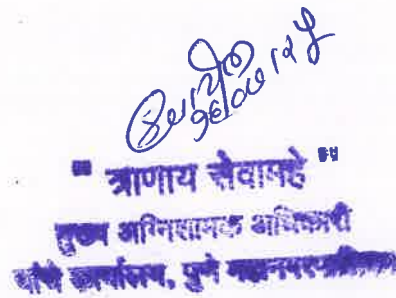 " त्राणाय सेवामहे "
मुख्य अग्निशामक अधिकारी
यांचे कार्यालय, पुणे महानगरपालिका